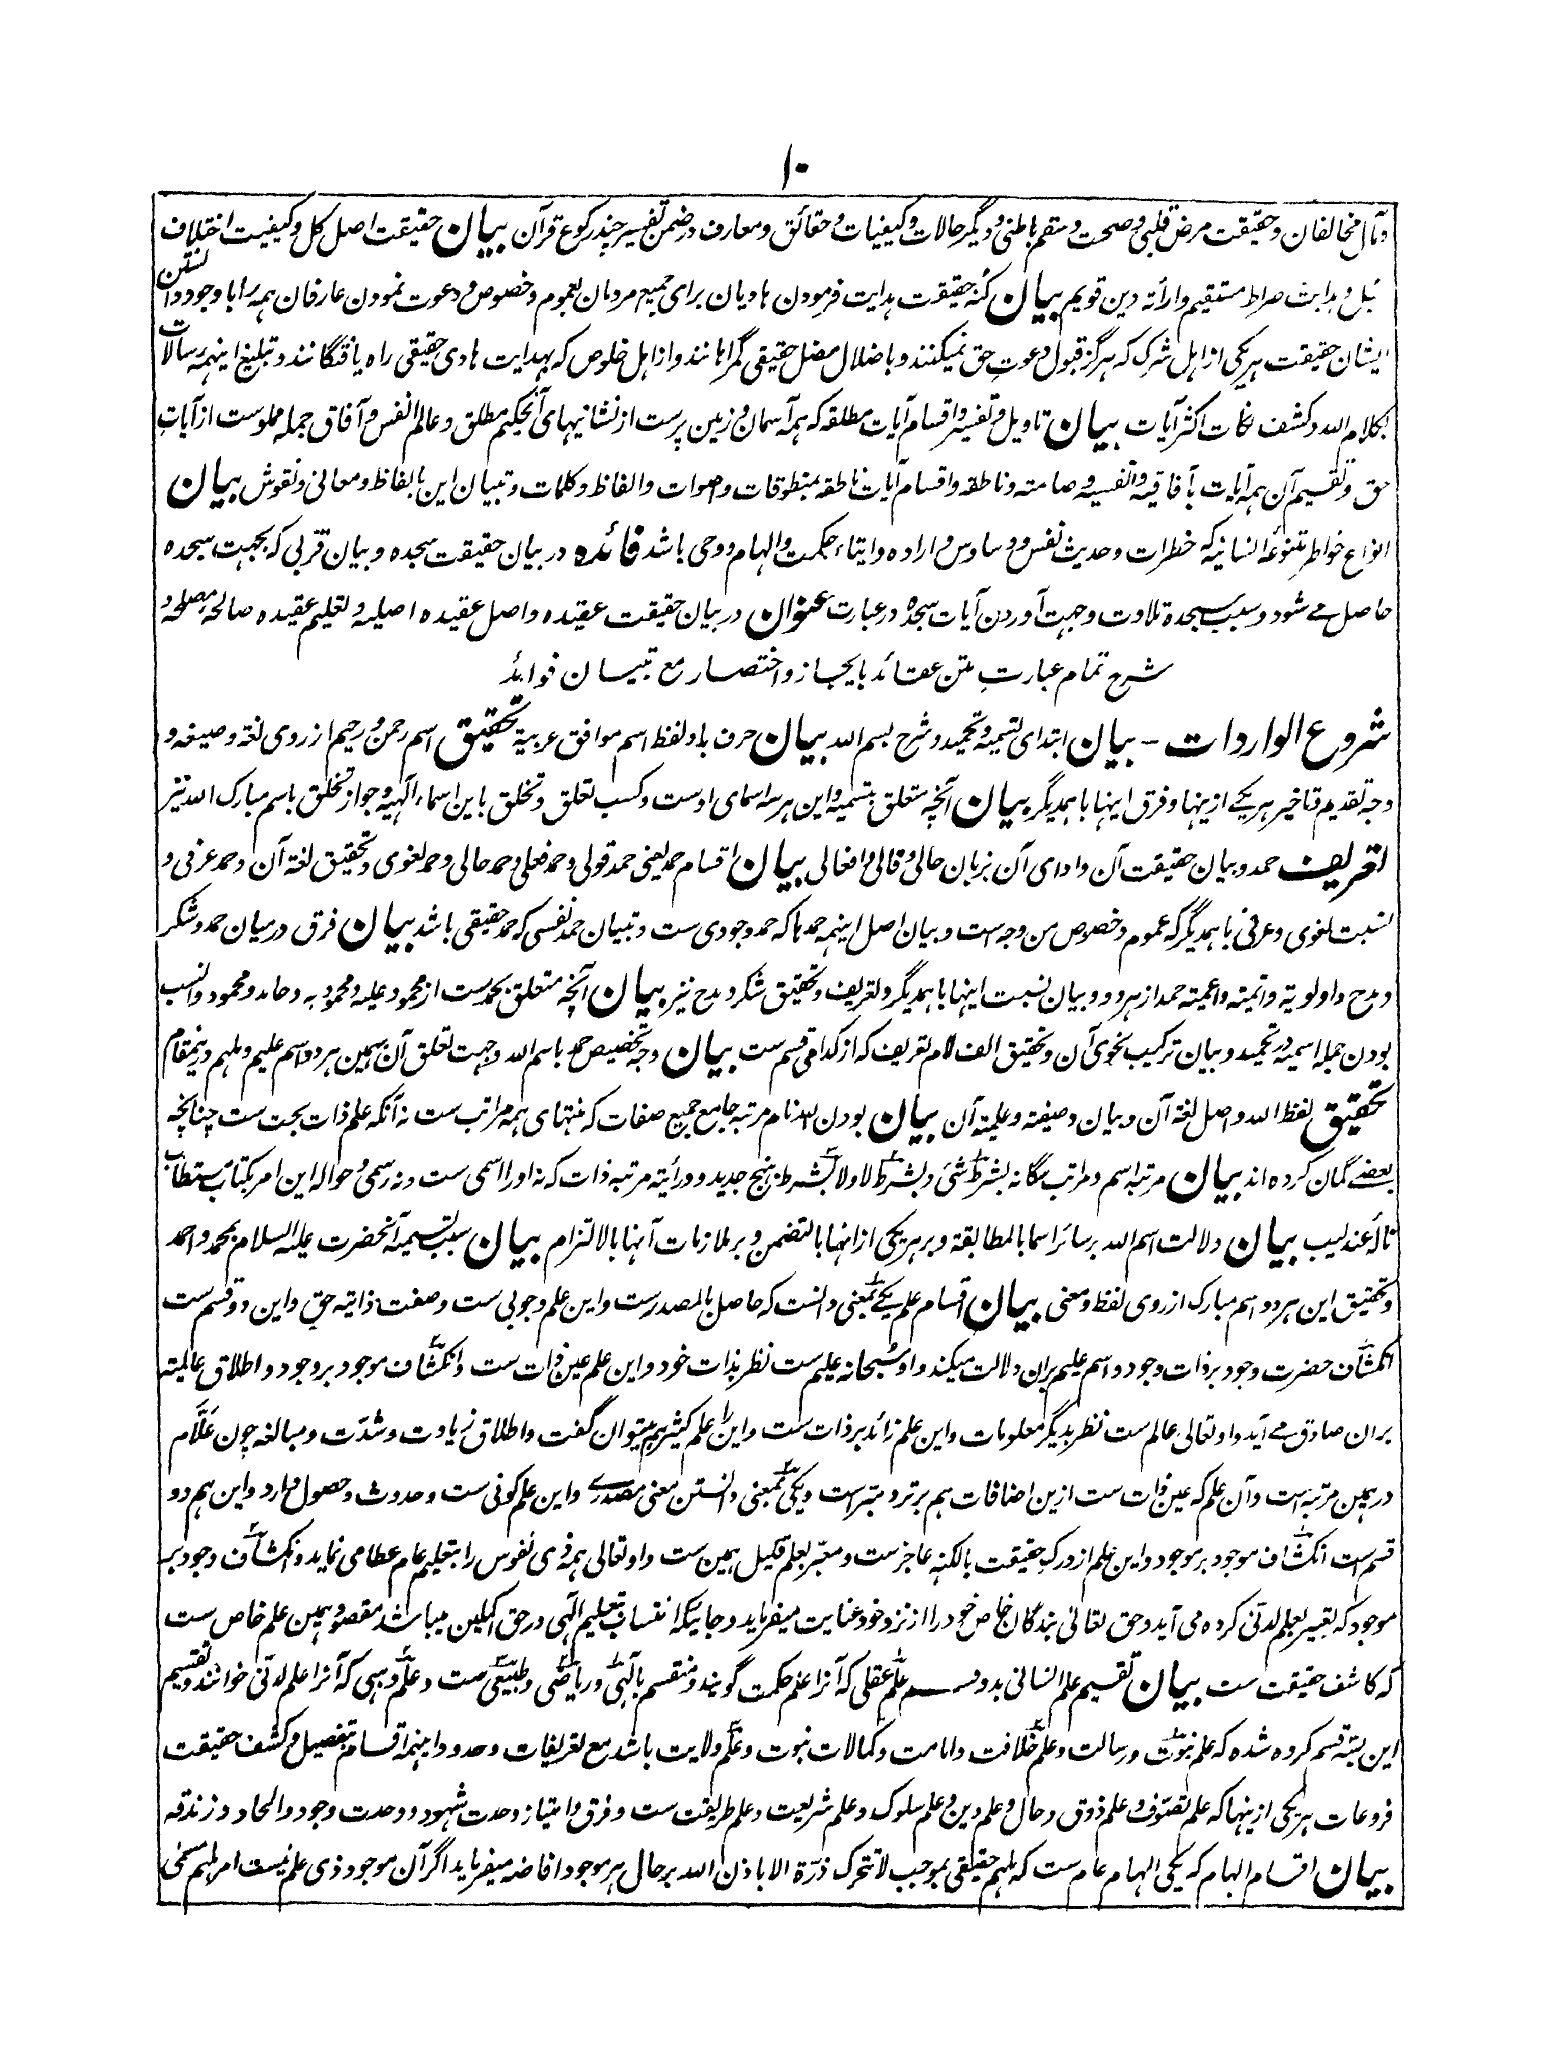 ۱۰
و مآل مخالفان و حقیقت مرض قلبی و صحت و سقم باطنی و دیگر حالات و کیفیات و حقائق و معارف در ضمن تفسیر چند رکوع قرآن بیان حقیقت اصل کل و کیفیت اختلاف
سبل و ہدایت صراط مستقیم و اراءتہ دین قویم بیان کنہ حقیقت ہدایت فرمودن ہادیان برای جمیع مردمان بعموم و خصوص و دعوت نمودن عارفان ہمہ را با وجود دانستن
ایشان حقیقت ہر یکی از اہل شرک کہ ہرگز قبول دعوت حق نمیکنند و باضلال مضل حقیقی گمراہانند و از اہل خلوص کہ بہدایت ہادی حقیقی راہ یافتگانند و تبلیغ اینہمہ رسالات
بکلام اللہ و کشف نکات اکثر آیات بیان تاویل و تفسیر و اقسام آیات مطلقہ کہ ہمہ آسمان و زمین پرست از نشانیہای آنحکیم مطلق و عالم انفس و آفاق جملہ مملوست از آیات
حق و تقسیم آن ہمہ آیات بآفاقیہ و انفسیہ و صامتہ و ناطقہ و اقسام آیات ناطقہ بمنطوقات و اصوات و الفاظ و کلمات و تبیان این بالفاظ و معانی و نقوش بیان
انواع خواطر متنوعۂ انسانیہ کہ خطرات و حدیث نفس و وساوس و ارادہ و ایتاء حکمت و الہام و وحی باشد فائدہ در بیان حقیقت سجدہ و بیان قربی کہ بجہت سجدہ
حاصل مے شود و سبب سجدہ تلاوت و جہت آوردن آیات سجدہ در عبارت عنوان در بیان حقیقت عقیدہ و اصل عقیدہ اصلیہ و تعلیم عقیدہ صالحہ مصلحہ و
شرح تمام عبارت متن عقائد بایجاز و اختصار مع تبیان فوائد
شروع الواردات - بیان ابتدای تسمیہ و تحمید و شرح بسم اللہ بیان حرف با و لفظ اسم موافق عربیۃ تحقیق اسم رحمن و رحیم از روی لغۃ و صیغہ و
وجہ تقدیم و تاخیر ہر یکے ازینہا و فرق اینہا باہمدیگر بیان آنچہ متعلق بتسمیہ و این ہر سہ اسمای اوست و کسب تعلق و تخلق باین اسماء الٓہیہ و جواز تخلق باسم مبارک اللہ نیز
تعریف حمد و بیان حقیقت آن و ادای آن بزبان حالی و قالی و افعالی بیان اقسام حمد یعنی حمد قولی و حمد فعلی و حمد حالی و حمد لغوی و تحقیق لغۃ آن و حمد عرفی و
نسبت لغوی و عرفی باہمدیگر کہ عموم و خصوص من وجہ است و بیان اصل اینہمہ حمدہا کہ حمد وجودی ست و تبیان حمد نفسی کہ حمد حقیقی باشد بیان فرق درمیان حمد و شکر
و مدح و اولویۃ و اتمیتہ و اعمیتہ حمد از ہر دو و بیان نسبت اینہا باہمدیگر و تعریف و تحقیق شکر و مدح نیز بیان آنچہ متعلق بحمدست از محمود علیہ و محمود بہ و حامد و محمود و انسب
بودن جملہ اسمیہ در تحمید و بیان ترکیب نحوی آن و تحقیق الف لام تعریف کہ از کدامی قسم ست بیان وجہ تخصیص حمد باسم اللہ و جہت تعلق آن بہمین ہر دو اسم علیم و ملہم درینمقام
تحقیق لفظ اللہ و اصل لغۃ آن و بیان وصفیتہ و علمیتہ آن بیان بودن اللہ نام مرتبہ جامع جمیع صفات کہ منتہای ہمہ مراتب ست نہ آنکہ علم ذات بحت ست چنانچہ
بعضے گمان کردہ اند بیان مرتبہ اسم و مراتب سگانہ بشرط شئ و بشرط لا و لا بشرط بنہج جدید و ورائیتہ مرتبہ ذات کہ نہ او را اسمی ست و نہ رسمی و حوالہ این امر بکتاب مستطاب
نالۂ عندلیب بیان دلالت اسم اللہ بر سائر اسما بالمطابقۃ و بر ہر یکی ازانہا بالتضمن و بر ملازمات آنہا بالالتزام بیان سبب تسمیہ آنحضرت علیہ السلام بمحمد و احمد
و تحقیق این ہر دو اسم مبارک از روی لفظ و معنی بیان اقسام علم یکے بمعنی دانست کہ حاصل بالمصدرست و این علم وجوبی ست و صفت ذاتیہ حق و این دو قسم ست
انکشاف حضرت وجود بر ذات وجود و اسم علیم بران دلالت میکند و او سبحانہ علیم ست نظر بذات خود و این علم عین ذات ست و انکشاف موجود بر وجود و اطلاق عالمیتہ
بران صادق مے آید و او تعالی عالم ست نظر بدیگر معلومات و این علم زائد بر ذات ست و این را علم کثیر ہم میتوان گفت و اطلاق زیادت و شدّت و مبالغہ چون علّام
درہمین مرتبہ است و آن علم کہ عین ذات ست ازین اضافات ہم برتر و متبراست و یکی بمعنی دانستن معنی مصدرے و این علم کونی ست و حدوث و حصول دارد و این ہم دو
قسم ست انکشاف موجود بر موجود و این علم از درک حقیقت بالکنہ عاجزست و معبّر بعلم قلیل ہمین ست و او تعالی ہمہ ذی نفوس را بتعلیم عام عطا می نماید و انکشاف وجود بر
موجود کہ تعبیر بعلم لدنی کردہ می آید و حق تعالی بندگان خاص خود را از نزد خود عنایت میفرماید و جائیکہ انتساب تعلیم الٓہی در حق اکملین میباشد مقصود ہمین علم خاص ست
کہ کاشف حقیقت ست بیان تقسیم علم انسانی بدو قسم علم عقلی کہ آنرا علم حکمت گویند و منقسم بالٓہی و ریاضی و طبیعی ست و علم وہبی کہ آنرا علم لدنی خوانند و تقسیم
این بسہ قسم کردہ شدہ کہ علم نبوت و رسالت و علم خلافت و امامت و کمالات نبوت و علم ولایت باشد مع تعریفات و حدود اینہمہ اقسام بتفصیل و کشف حقیقت
فروعات ہر یکی ازینہا کہ علم تصوّف و علم ذوق و حال و علم دین و علم سلوک و علم شریعت و علم طریقت ست و فرق و امتیاز وحدت شہود و وحدت وجود و الحاد و زندقہ
بیان اقسام الہام کہ یکی الہام عام ست کہ ملہم حقیقی بموجب لا تتحرک ذرّۃ الا باذن اللہ بر حال ہر موجود افاضہ میفرماید اگر آن موجود ذی علم نیست امر ملہم مسمی